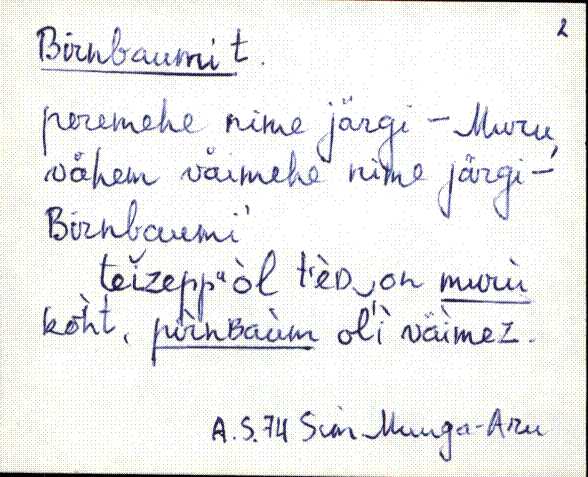 2
Birnbaumi t.
peremehe nime järgi – Muru,
vähem väimehe nime järgi –
Birnbaumi
teizepp" òl t'èD on murù
kòht, pìrnBaùm ol'ì väìmez.
A.S. 74 Sim Munga-Aru